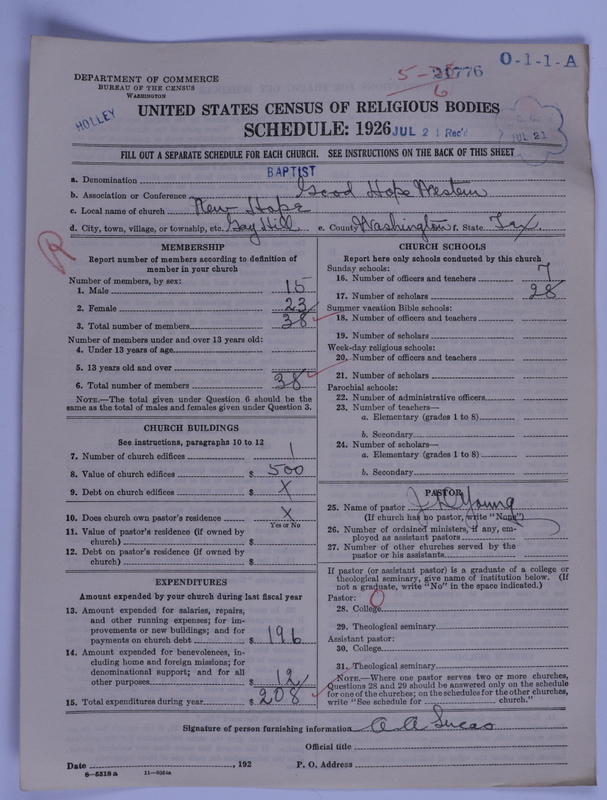 O-1-1-A
5-
20776
6
DEPARTMENT OF COMMERCE
BUREAU OF THE CENSUS
WASHINGTON
HOLLEY
UNITED STATES CENSUS OF RELIGIOUS BODIES
SCHEDULE: 1926 JUL 21 Rec'd
JUL 21
FILL OUT A SEPARATE SCHEDULE FOR EACH CHURCH. SEE INSTRUCTIONS ON THE BACK OF THIS SHEET
a. Denomination BAPTIST
b. Association or Conference Good Hope Western
c. Local name of church New Hope
d. City, town, village, or township, etc. Gay Hill e. County Washington f. State Tex
R
MEMBERSHIP
Report number of members according to definition of
member in your church
Number of members, by sex:
1. Male 15
2. Female 23
3. Total number of members 38
Number of members under and over 13 years old:
4. Under 13 years of age
5. 13 years old and over
6. Total number of members 38
NOTE.—The total given under Question 6 should be the
same as the total of males and females given under Question 3.
CHURCH BUILDINGS
See instructions, paragraphs 10 to 12
7. Number of church edifices 1
8. Value of church edifices $ 500
9. Debt on church edifices $ X
10. Does church own pastor's residence X
Yes or No
11. Value of pastor's residence (if owned by
church) $
12. Debt on pastor's residence (if owned by
church) $
EXPENDITURES
Amount expended by your church during last fiscal year
13. Amount expended for salaries, repairs,
and other running expenses; for im-
provements or new buildings; and for
payments on church debt $ 196
14. Amount expended for benevolences, in-
cluding home and foreign missions; for
denominational support; and for all
other purposes $ 12
15. Total expenditures during year $ 208
CHURCH SCHOOLS
Report here only schools conducted by this church
Sunday schools:
16. Number of officers and teachers 7
17. Number of scholars 28
Summer vacation Bible schools:
18. Number of officers and teachers
19. Number of scholars
Week-day religious schools:
20. Number of officers and teachers
21. Number of scholars
Parochial schools:
22. Number of administrative officers
23. Number of teachers—
a. Elementary (grades 1 to 8)
b. Secondary
24. Number of scholars—
a. Elementary (grades 1 to 8)
b. Secondary
PASTOR
25. Name of pastor Young
(If church has no pastor, write "None")
26. Number of ordained ministers, if any, em-
ployed as assistant pastors
27. Number of other churches served by the
pastor or his assistants
If pastor (or assistant pastor) is a graduate of a college or
theological seminary, give name of institution below. (If
not a graduate, write "No" in the space indicated.)
Pastor: 0
28. College
29. Theological seminary
Assistant pastor:
30. College
31. Theological seminary
NOTE.—Where one pastor serves two or more churches,
Questions 28 and 29 should be answered only on the schedule
for one of the churches; on the schedules for the other churches,
write "See schedule for church."
Signature of person furnishing information A A Lucas
Official title
Date , 192 P. O. Address
8-5518 a